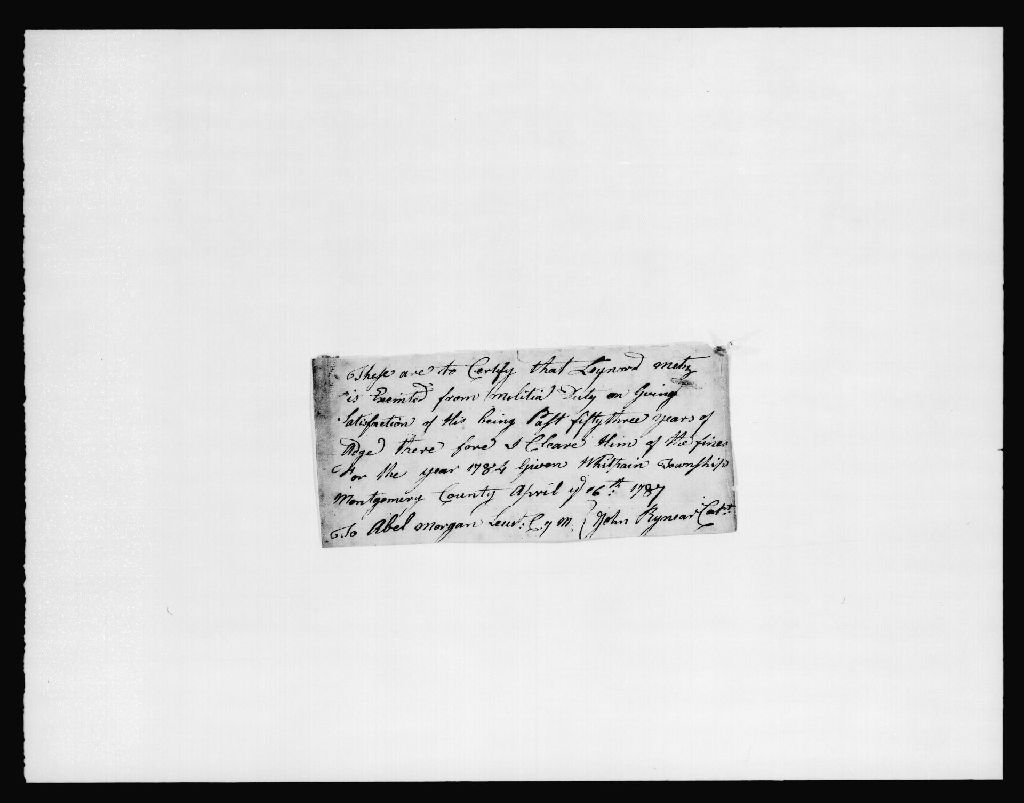 These are to Certify that Leynord Metz
is Exemted from Militia Duty on Giving
Satisfaction of His being Past fifty three years of
Adge there fore I Cleare Him of the fines
For the year 1784 Given Whitpain Township
Montgomery County April ye 16th 1787
To Abel Morgan Leut. C y M. John Rynear Capt.